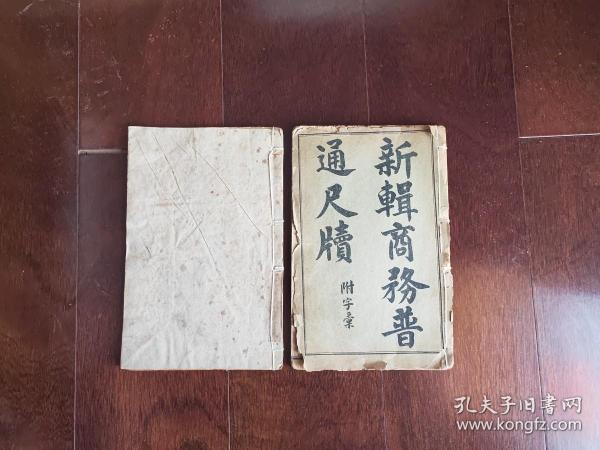 新輯商務普
通尺牘
附字彙
孔夫子旧书网
www.kongfz.com